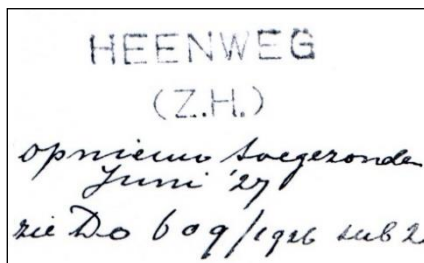 HEENWEG
(Z.H.)
opnieuw toegezonden
Juni '27
zie Do 609/1926 sub 2